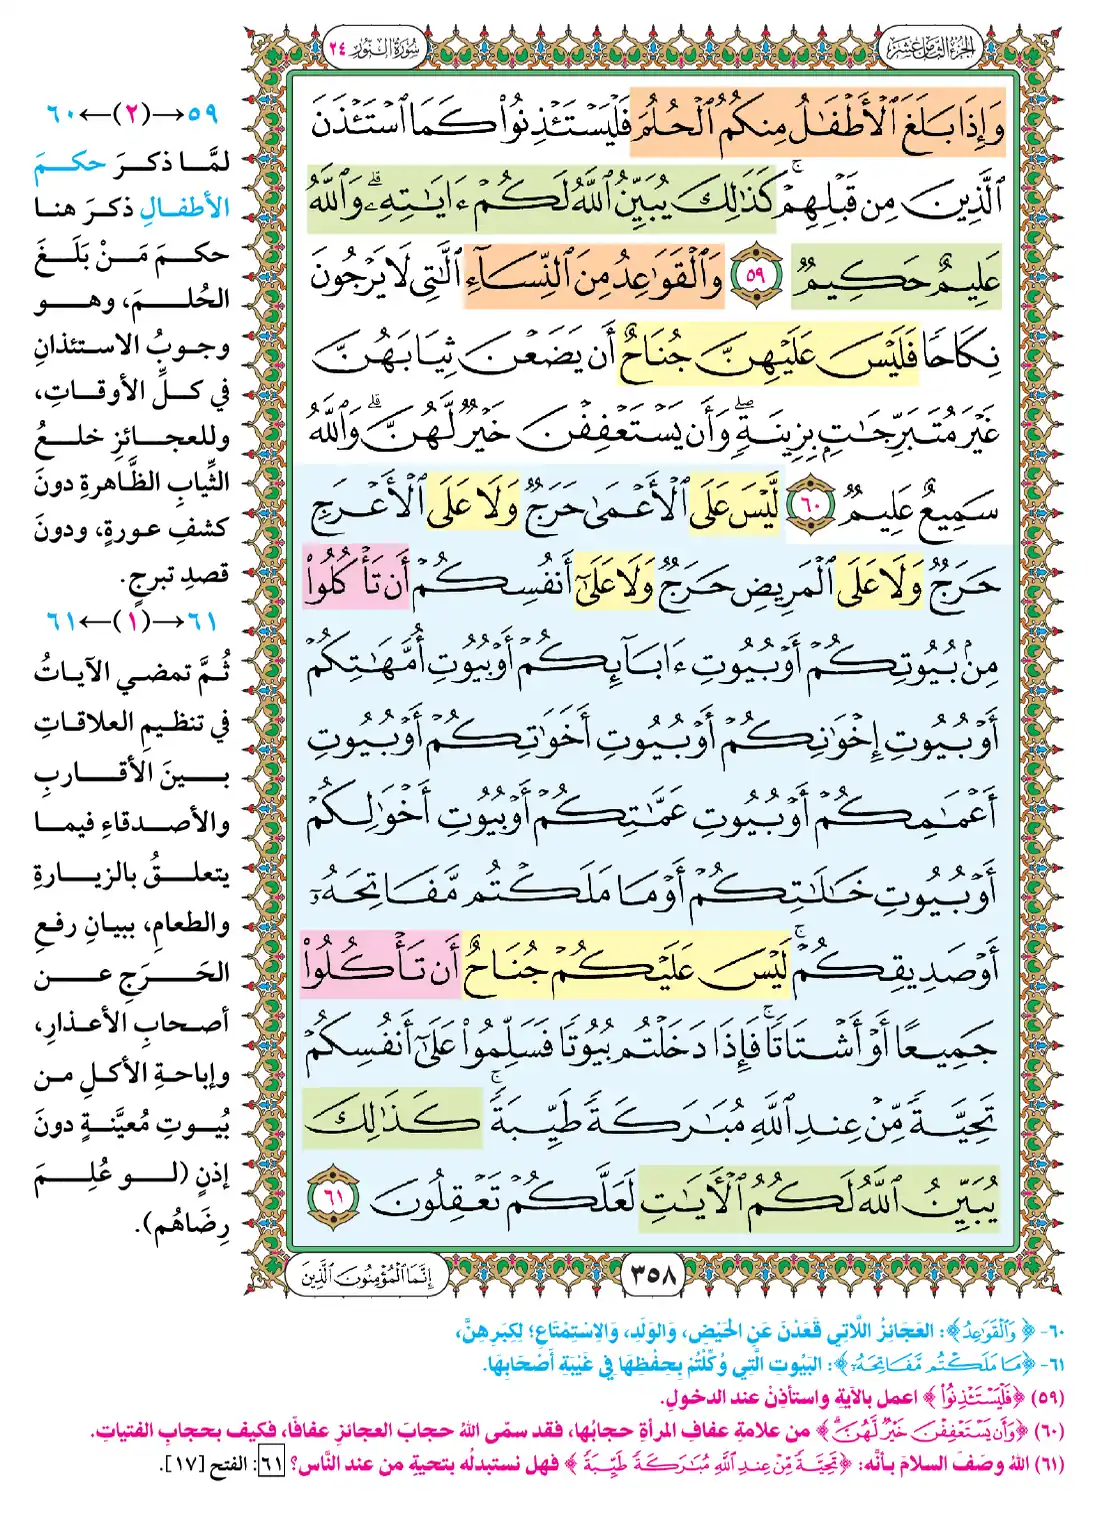 الجزء الثامن عشر
سورة النور ٢٤
وَإِذَا بَلَغَ ٱلۡأَطۡفَٰلُ مِنكُمُ ٱلۡحُلُمَ فَلۡيَسۡتَـٔۡذِنُواْ كَمَا ٱسۡتَـٔۡذَنَ
ٱلَّذِينَ مِن قَبۡلِهِمۡۚ كَذَٰلِكَ يُبَيِّنُ ٱللَّهُ لَكُمۡ ءَايَٰتِهِۦۗ وَٱللَّهُ
عَلِيمٌ حَكِيمٞ ٥٩ وَٱلۡقَوَٰعِدُ مِنَ ٱلنِّسَآءِ ٱلَّٰتِي لَا يَرۡجُونَ
نِكَاحٗا فَلَيۡسَ عَلَيۡهِنَّ جُنَاحٌ أَن يَضَعۡنَ ثِيَابَهُنَّ
غَيۡرَ مُتَبَرِّجَٰتِۭ بِزِينَةٖۖ وَأَن يَسۡتَعۡفِفۡنَ خَيۡرٞ لَّهُنَّۗ وَٱللَّهُ
سَمِيعٌ عَلِيمٞ ٦٠ لَّيۡسَ عَلَى ٱلۡأَعۡمَىٰ حَرَجٞ وَلَا عَلَى ٱلۡأَعۡرَجِ
حَرَجٞ وَلَا عَلَى ٱلۡمَرِيضِ حَرَجٞ وَلَا عَلَىٰٓ أَنفُسِكُمۡ أَن تَأۡكُلُواْ
مِنۢ بُيُوتِكُمۡ أَوۡ بُيُوتِ ءَابَآئِكُمۡ أَوۡ بُيُوتِ أُمَّهَٰتِكُمۡ
أَوۡ بُيُوتِ إِخۡوَٰنِكُمۡ أَوۡ بُيُوتِ أَخَوَٰتِكُمۡ أَوۡ بُيُوتِ
أَعۡمَٰمِكُمۡ أَوۡ بُيُوتِ عَمَّٰتِكُمۡ أَوۡ بُيُوتِ أَخۡوَٰلِكُمۡ
أَوۡ بُيُوتِ خَٰلَٰتِكُمۡ أَوۡ مَا مَلَكۡتُم مَّفَاتِحَهُۥٓ
أَوۡ صَدِيقِكُمۡۚ لَيۡسَ عَلَيۡكُمۡ جُنَاحٌ أَن تَأۡكُلُواْ
جَمِيعًا أَوۡ أَشۡتَاتٗاۚ فَإِذَا دَخَلۡتُم بُيُوتٗا فَسَلِّمُواْ عَلَىٰٓ أَنفُسِكُمۡ
تَحِيَّةٗ مِّنۡ عِندِ ٱللَّهِ مُبَٰرَكَةٗ طَيِّبَةٗۚ كَذَٰلِكَ
يُبَيِّنُ ٱللَّهُ لَكُمُ ٱلۡأٓيَٰتِ لَعَلَّكُمۡ تَعۡقِلُونَ ٦١
٣٥٨
إِنَّمَا ٱلۡمُؤۡمِنُونَ ٱلَّذِينَ
٥٩→(٢)←٦٠
لمَّا ذكرَ حكمَ
الأطفالِ ذكرَ هنا
حكمَ مَنْ بَلَغَ
الحُلمَ، وهو
وجوبُ الاستئذانِ
في كلِّ الأوقاتِ،
وللعجائزِ خلعُ
الثِّيابِ الظَّاهرةِ دونَ
كشفِ عورةٍ، ودونَ
قصدِ تبرجٍ.
٦١→(١)←٦١
ثُمَّ تمضي الآياتُ
في تنظيمِ العلاقاتِ
بينَ الأقاربِ
والأصدقاءِ فيما
يتعلقُ بالزيارةِ
والطعامِ، ببيانِ رفعِ
الحَرَجِ عن
أصحابِ الأعذارِ،
وإباحةِ الأكلِ من
بُيوتٍ مُعيَّنةٍ دونَ
إذنٍ (لو عُلِمَ
رِضَاهُم).
٦٠- ﴿وَٱلۡقَوَٰعِدُ﴾: العَجَائِزُ اللَّاتِي قَعَدْنَ عَنِ الحَيْضِ، وَالوَلَدِ، وَالاِسْتِمْتَاعِ؛ لِكِبَرِهِنَّ،
٦١- ﴿مَا مَلَكۡتُم مَّفَاتِحَهُۥٓ﴾: البُيُوتَ الَّتِي وُكِّلْتُمْ بِحِفْظِهَا فِي غَيْبَةِ أَصْحَابِهَا.
(٥٩) ﴿فَلۡيَسۡتَـٔۡذِنُواْ﴾ اعمل بالآيةِ واستأذِنْ عند الدخولِ.
(٦٠) ﴿وَأَن يَسۡتَعۡفِفۡنَ خَيۡرٞ لَّهُنَّۗ﴾ من علامةِ عفافِ المرأةِ حجابُها، فقد سمّى اللهُ حجابَ العجائزِ عفافًا، فكيف بحجابِ الفتياتِ.
(٦١) اللهُ وصَفَ السلامَ بأنَّه: ﴿تَحِيَّةٗ مِّنۡ عِندِ ٱللَّهِ مُبَٰرَكَةٗ طَيِّبَةٗ﴾ فهل نستبدلُه بتحيةٍ من عند النَّاس؟ ٦١: الفتح [١٧].